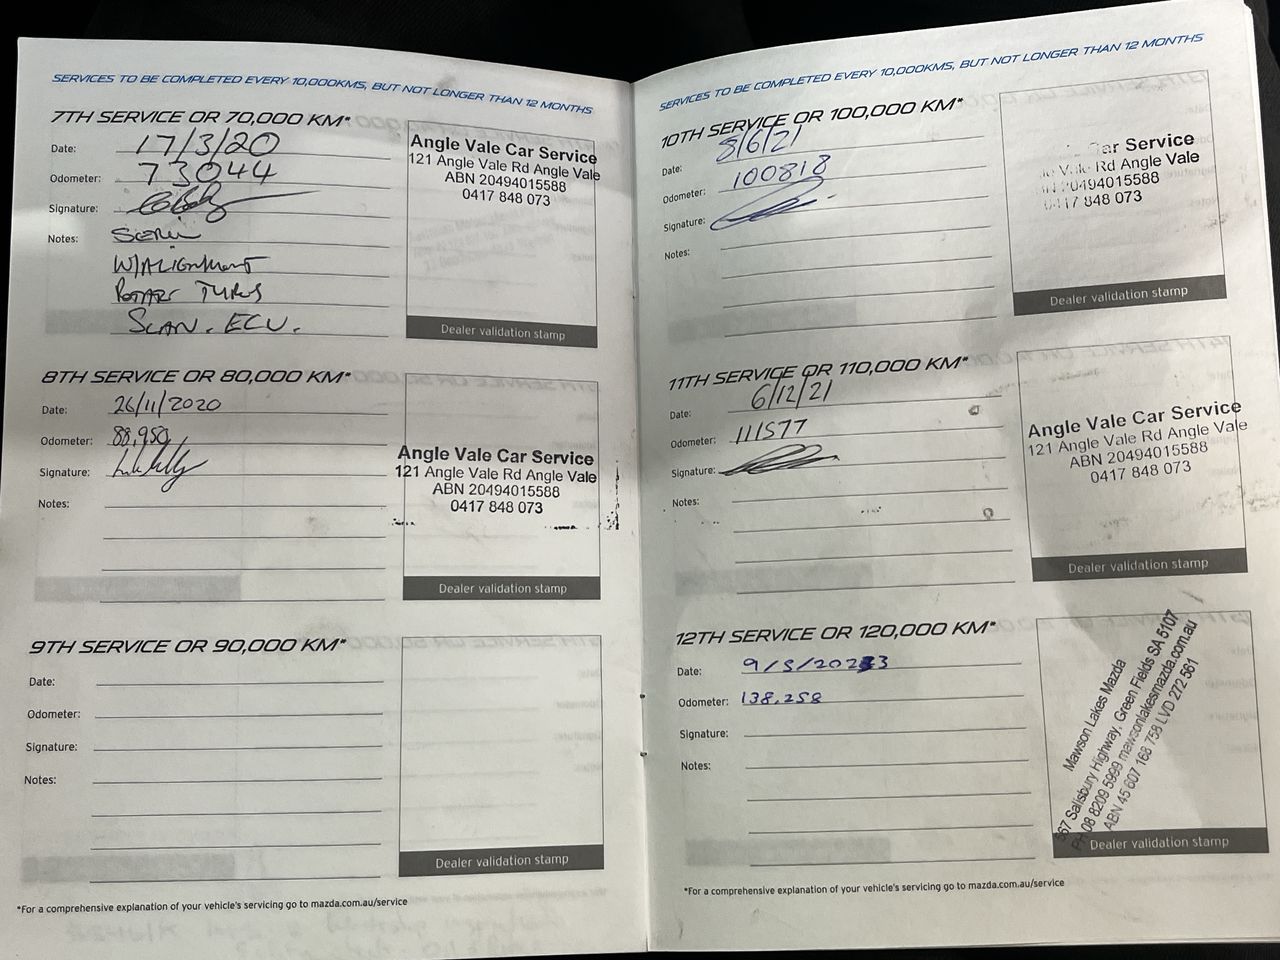 SERVICES TO BE COMPLETED EVERY 10,000KMS, BUT NOT LONGER THAN 12 MONTHS
7TH SERVICE OR 70,000 KM*
Date: 17/3/20
Odometer: 73044
Signature:
Notes:
W/ALIGNMENT
ROTATE TYRES
SCAN. ECU.
Angle Vale Car Service
121 Angle Vale Rd Angle Vale
ABN 20494015588
0417 848 073
Dealer validation stamp
8TH SERVICE OR 80,000 KM*
Date: 26/11/2020
Odometer: 88,950
Signature:
Notes:
Angle Vale Car Service
121 Angle Vale Rd Angle Vale
ABN 20494015588
0417 848 073
Dealer validation stamp
9TH SERVICE OR 90,000 KM*
Date:
Odometer:
Signature:
Notes:
Dealer validation stamp
*For a comprehensive explanation of your vehicle's servicing go to mazda.com.au/service
SERVICES TO BE COMPLETED EVERY 10,000KMS, BUT NOT LONGER THAN 12 MONTHS
10TH SERVICE OR 100,000 KM*
Date: 8/6/21
Odometer: 100818
Signature:
Notes:
Car Service
Vale Rd Angle Vale
20494015588
0417 848 073
Dealer validation stamp
11TH SERVICE OR 110,000 KM*
Date: 6/12/21
Odometer: 111577
Signature:
Notes:
Angle Vale Car Service
121 Angle Vale Rd Angle Vale
ABN 20494015588
0417 848 073
Dealer validation stamp
12TH SERVICE OR 120,000 KM*
Date: 9/5/2023
Odometer: 138,258
Signature:
Notes:
Mawson Lakes Mazda
567 Salisbury Highway, Green Fields SA 5107
PH 08 8209 5999 mawsonlakesmazda.com.au
ABN 45 607 168 758 LVD 272 561
Dealer validation stamp
*For a comprehensive explanation of your vehicle's servicing go to mazda.com.au/service